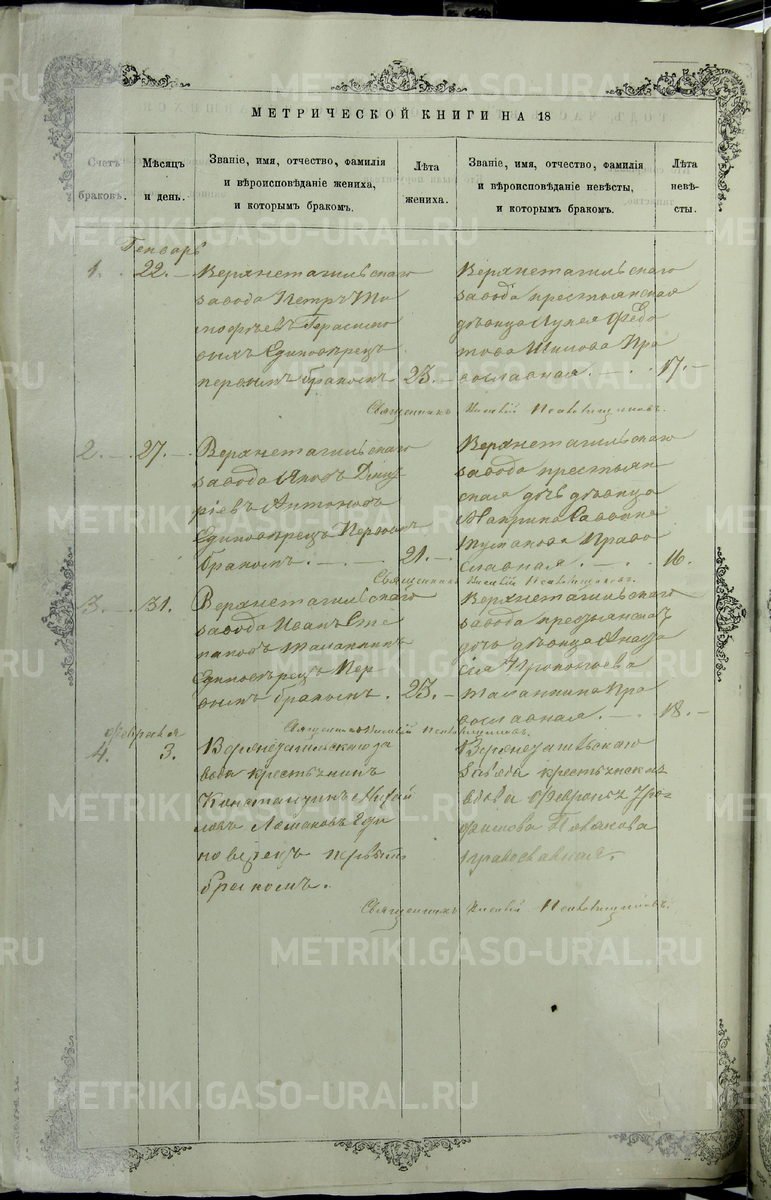 МЕТРИЧЕСКОЙ КНИГИ НА 18
Счетъ браковъ.
Мѣсяцъ и день.
Званіе, имя, отчество, фамилія
и вѣроисповѣданіе жениха,
и которымъ бракомъ.
Лѣта жениха.
Званіе, имя, отчество, фамилія
и вѣроисповѣданіе невѣсты,
и которымъ бракомъ.
Лѣта невѣсты.
Генварь
1. 22.
Верхнетагильскаго
завода Петръ Ти
мофѣевъ Герасимо
выхъ Единовѣрецъ
первымъ бракомъ
23.
Верхнетагильскаго
завода крестьянская
дѣвица Ѳедо
това Шилова Пра
вославная.
17.
Священникъ
2. 27.
Верхнетагильскаго
завода Яковъ Дмит
ріевъ Антоновъ
Единовѣрецъ Первымъ
бракомъ.
21.
Верхнетагильскаго
завода крестьян
ская дочь дѣвица
Право
славная.
16.
Священникъ
3. 31.
Верхнетагильскаго
завода Иванъ Сте
пановъ Маланинъ
Единовѣрецъ Пер
вымъ бракомъ.
23.
Верхнетагильскаго
завода крестьянская
дочь дѣвица Анаста
сія Прокопьева
Маланнина Пра
вославная.
18.
Священникъ
Февраля
4. 3.
Верхнетагильскаго за
вода крестьянинъ
Константинъ Михай
ловъ Еди
новѣрецъ первымъ
бракомъ.
Верхнетагильскаго
завода крестьянская
вдова Февронья Тро
фимова Полякова
православная.
Священникъ
METRIKI.GASO-URAL.RU